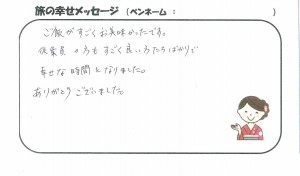 旅の幸せメッセージ （ペンネーム： ）
ご飯がすごくお美味かったです。
従業員の方もすごく良い方たちばかりで
幸せな時間となりました。
ありがとうございました。